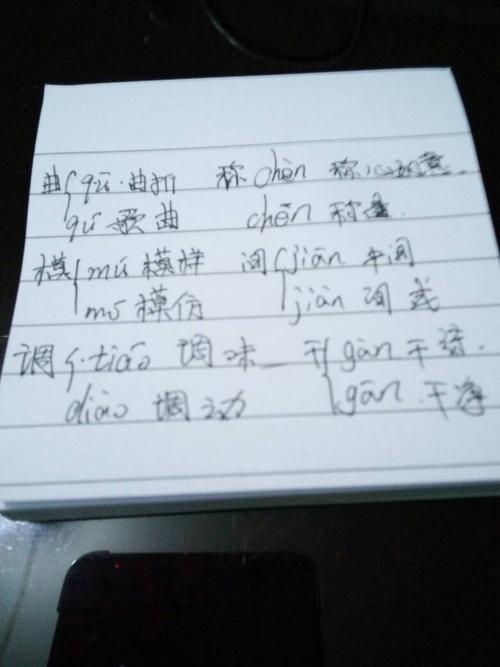 曲{qū·曲折 称 chèn 称心如意.
qǔ 歌曲 chēn 称量
模{mú 模样 间{jiān 中间
mó 模仿 jiàn 间或
调{·tiáo 调味 干{gàn
diào 调动 gān 干净